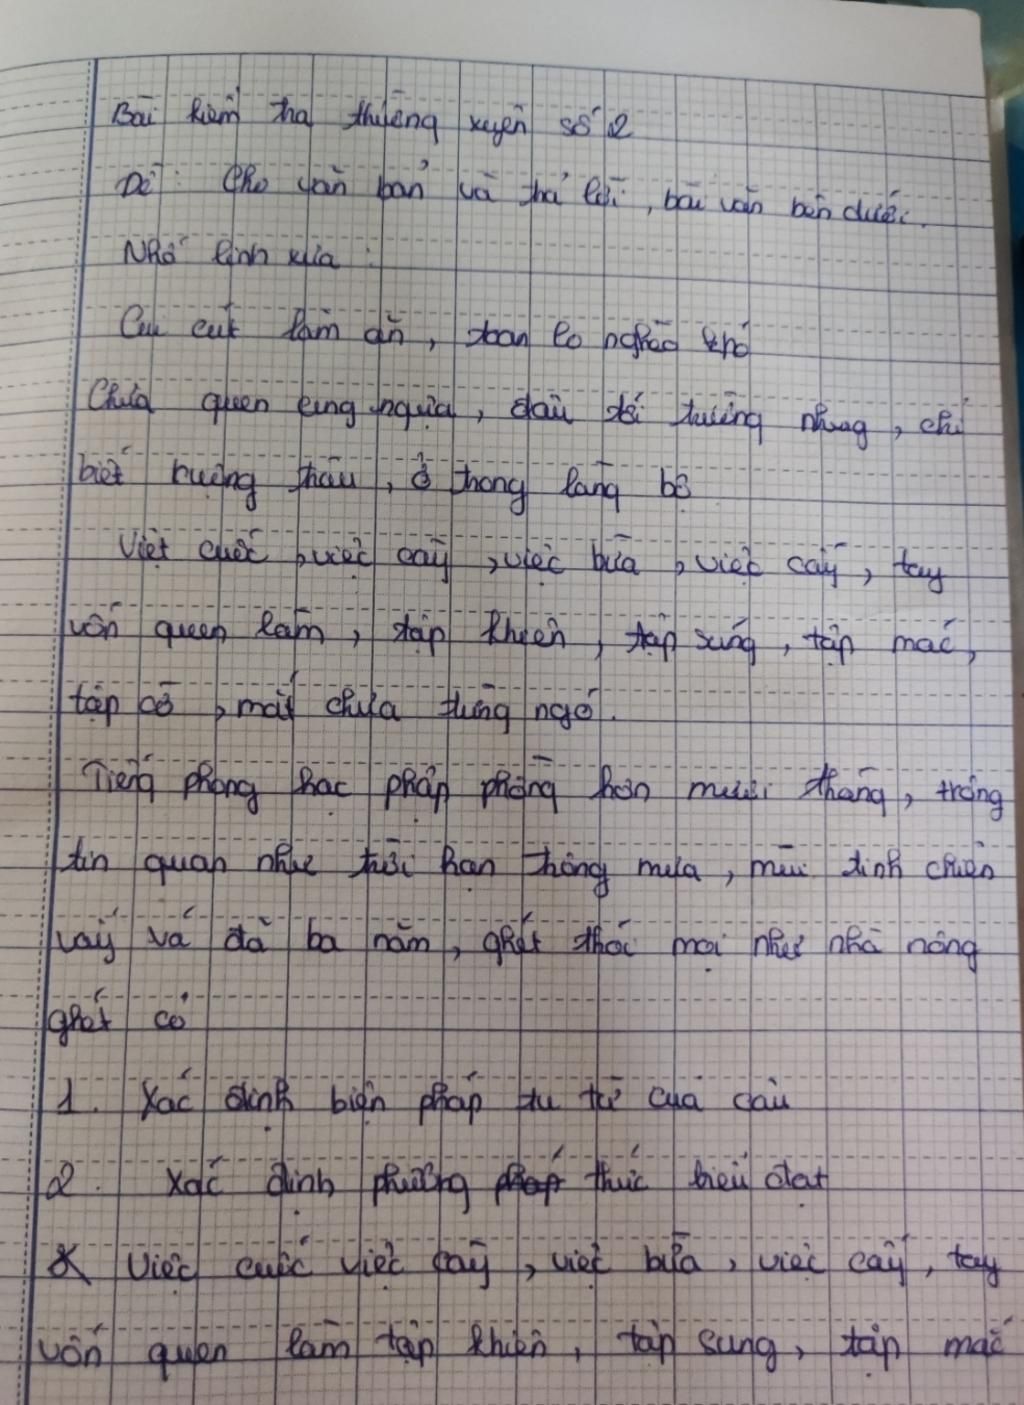 Bài kiểm tra thường xuyên số 2
Đề: Cho văn bản và trả lời, bài văn bên dưới.
Nhớ linh xưa:
Cui cút làm ăn, toan lo nghèo khó
Chưa quen cung ngựa, đâu tới trường nhung, chỉ
biết ruộng trâu, ở trong làng bộ
Việt cuốc, việc cày, việc bừa, việc cấy, tay
vốn quen làm, tập khiên, tập súng, tập mác,
tập cờ, mắt chưa từng ngó.
Tiếng phong hạc phập phồng hơn mười tháng, trông
tin quan như trời hạn trông mưa, mùi tinh chiên
vấy vá đã ba năm, ghét thói mọi như nhà nông
ghét cỏ
1. Xác định biện pháp tu từ của câu
2. Xác định phương thức biểu đạt
Việc cuốc việc cày, việc bừa, việc cấy, tay
vốn quen làm tập khiên, tập sung, tập mác